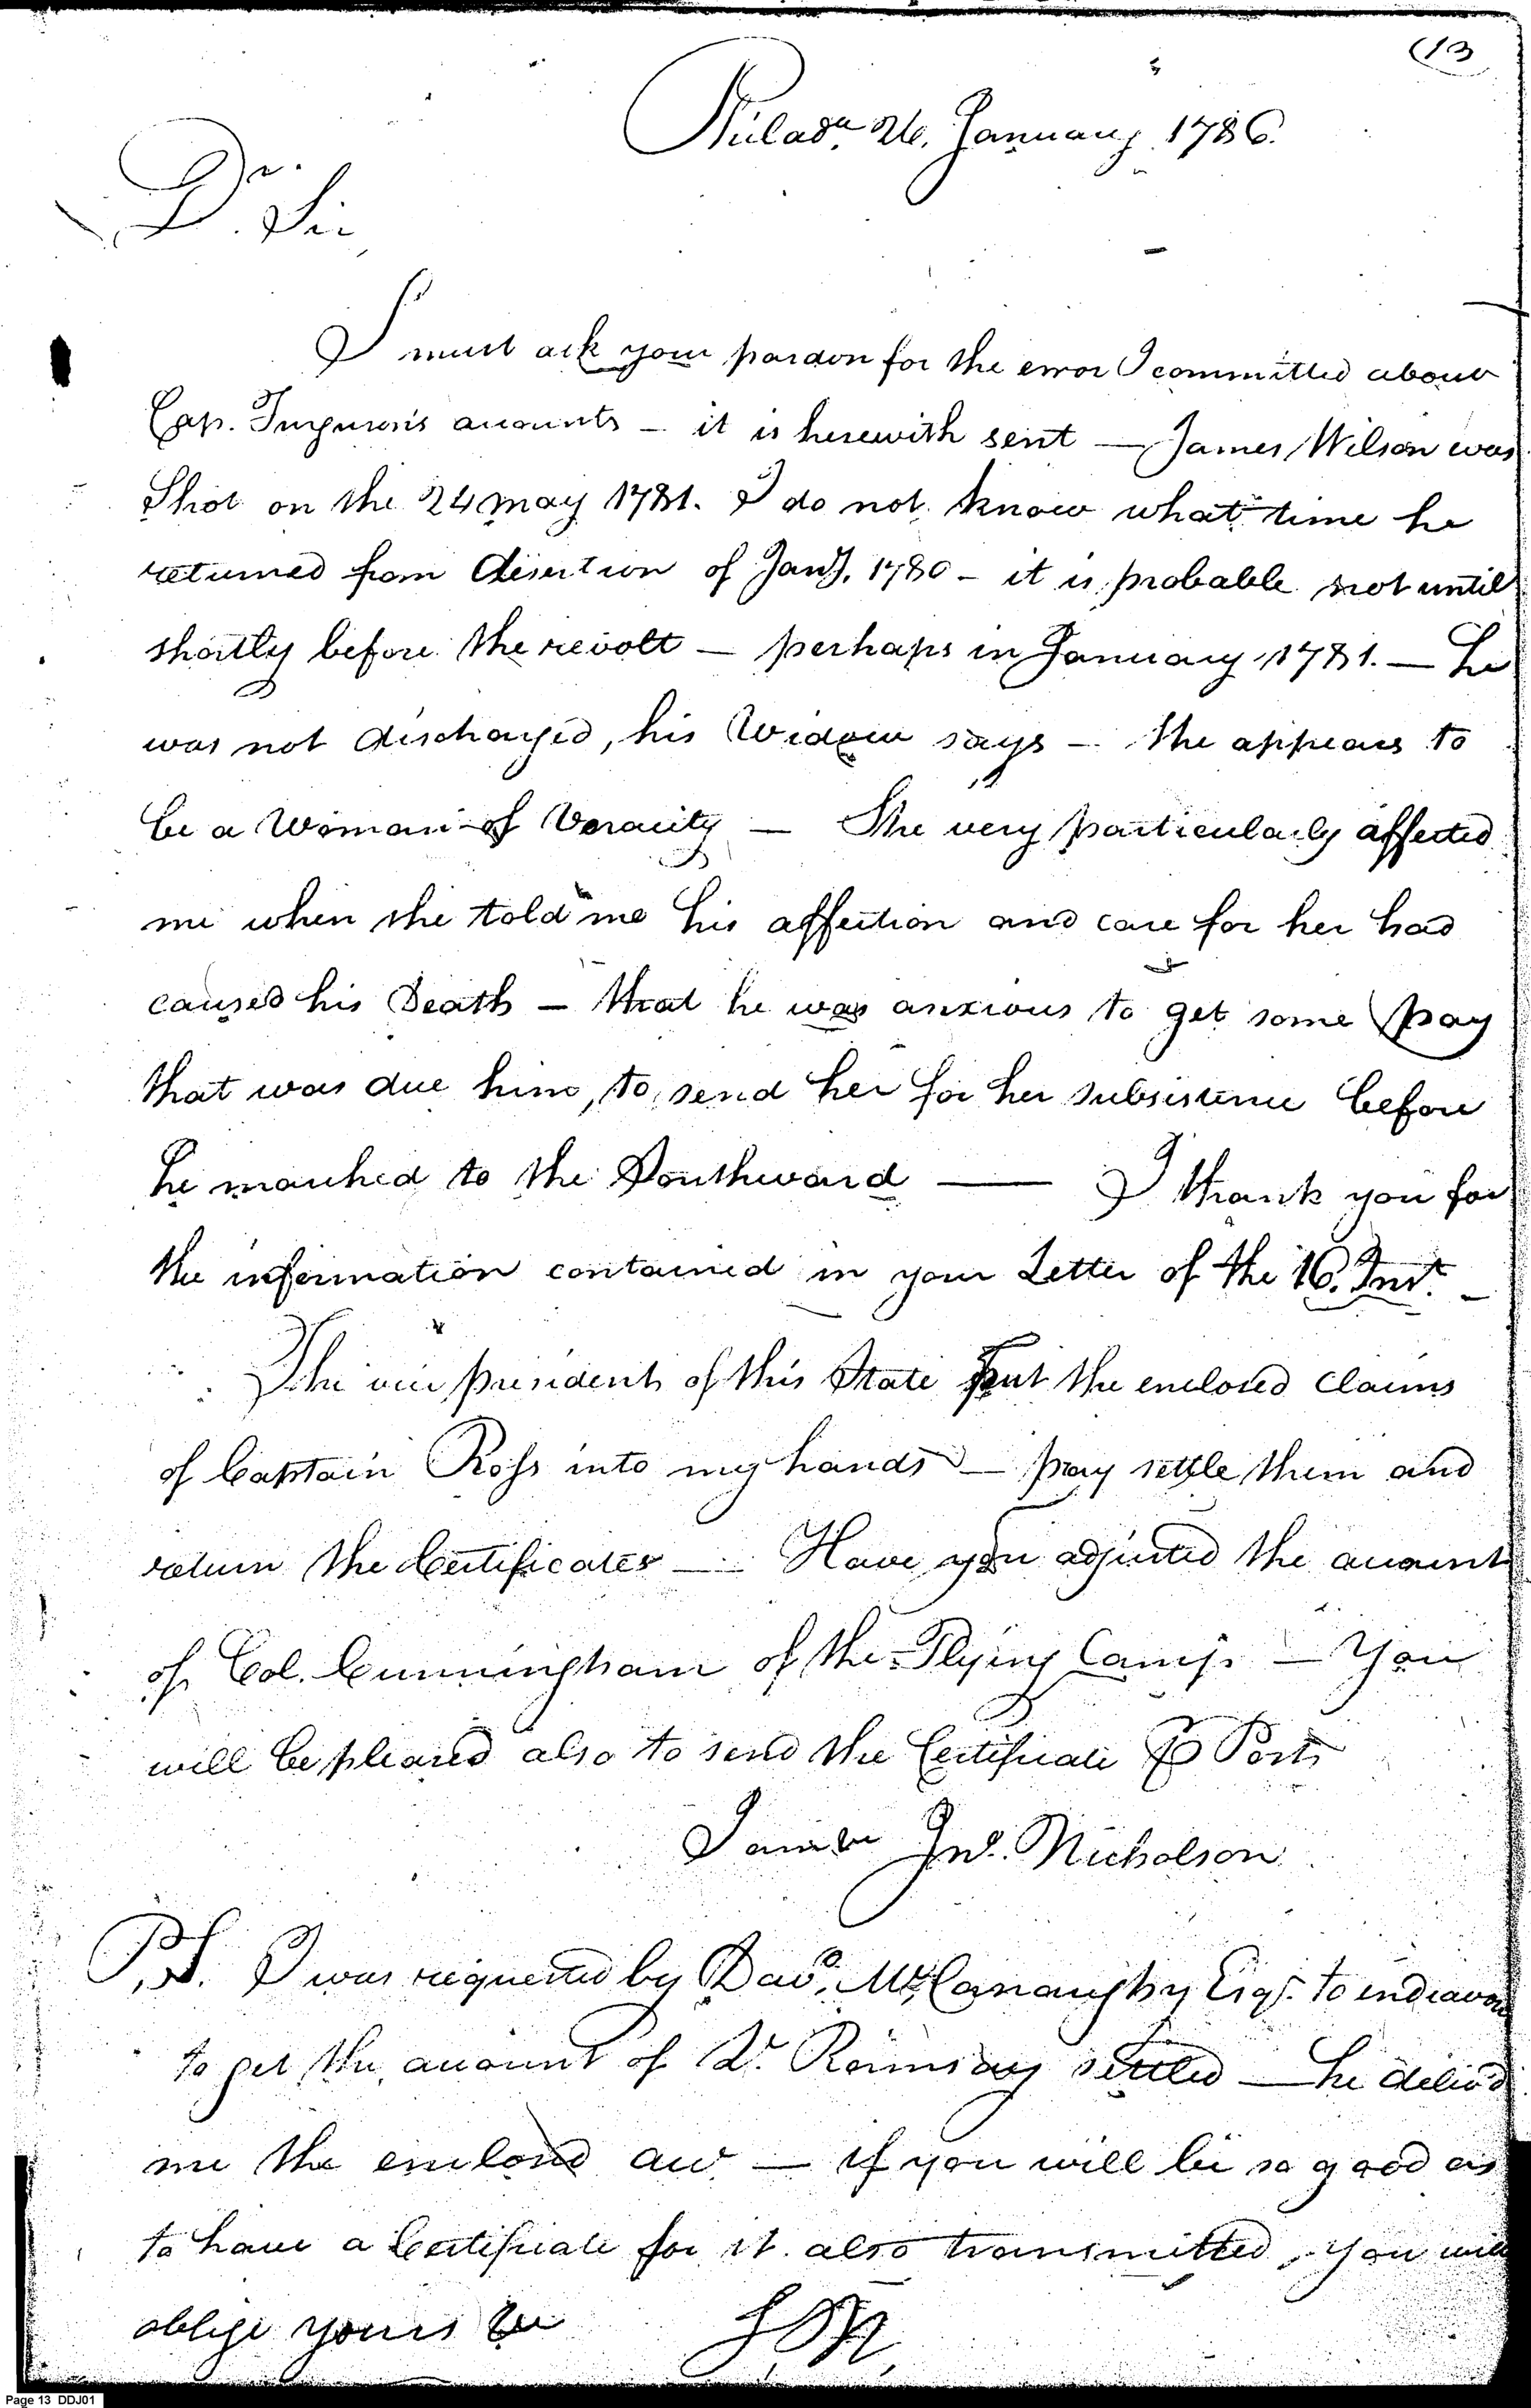 (13
Philada. 26. January 1786.
Dr. Sir
I must ask your pardon for the error I committed about
Cap. Furguson's accounts – it is herewith sent — James Wilson was
Shot on the 24 may 1781. I do not know what time he
returned from desertion of Jany. 1780 – it is probable not until
shortly before the revolt — perhaps in January 1781. — he
was not discharged, his Widow says — she appears to
be a Woman of Veracity — She very particularly affected
me when she told me his affection and care for her had
caused his Death — that he was anxious to get some pay
that was due him, to send her for her subsistence before
he marched to the Southward — I thank you for
the information contained in your Letter of the 16. Inst. –
The vice president of this State put the enclosed claims
of Captain Ross into my hands — pray settle them and
return the Certificates — Have you adjusted the account
of Col. Cunningham of the Flying Camp — You
will be pleased also to send the Certificate Post
I am &c Jno. Nicholson
P.S. I was requested by Davd. McConaughy Esqr. to endeavour
to get the account of Dr. Ramsay settled — he deliv'd
me the enclosed acct — if you will be so good as
to have a Certificate for it also transmitted, you will
oblige yours &c JN
Page 13 DDJ01